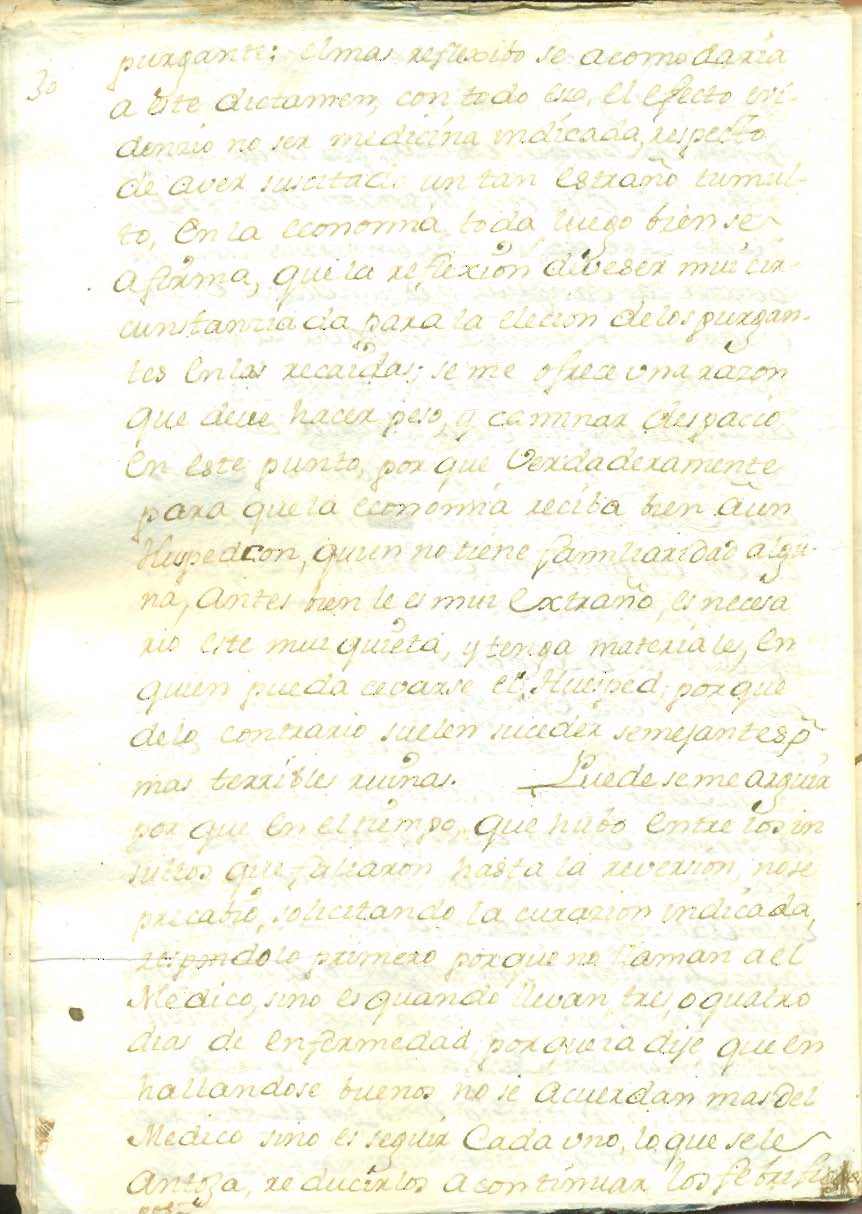 30
purgante; el mas reflexibo se acomodaria
a este dictamen, con todo eso, el efecto evi-
denzio no ser medicina indicada, respecto
de aver suscitado un tan estraño tumul-
to, En la economia toda luego bien se
afirma, que la reflexion deve ser mui cir-
cunstanziada para la elecion de los purgan-
tes En las recaidas; se me ofrece una razon
que deve hacer peso, y caminar despacio
En este punto, por que Verdaderamente
para que la economia reciba bien aun
Huesped con, quien no tiene familiaridad algu-
na, antes bien le es mui Extraño, es necesa
rio este mui quieta, y tenga materiales, En
quien pueda cevarse el Huesped, por que
delo contrario suelen suceder semejantes,
mas terribles ruinas. Puede se me arguir
por que En el tiempo, que hubo Entre los in
sultos que faltaron hasta la reversion, no se
precabió, solicitando la curazion indicada,
respondo lo primero porque no llaman a el
Medico, sino es quando llevan tres, o quatro
dias de Enfermedad, por que ia dije, que En
hallandose buenos no se acuerdan mas del
Medico sino es seguir Cada uno, lo que se le
Antoja, reducirlos a continuar los febrifugos